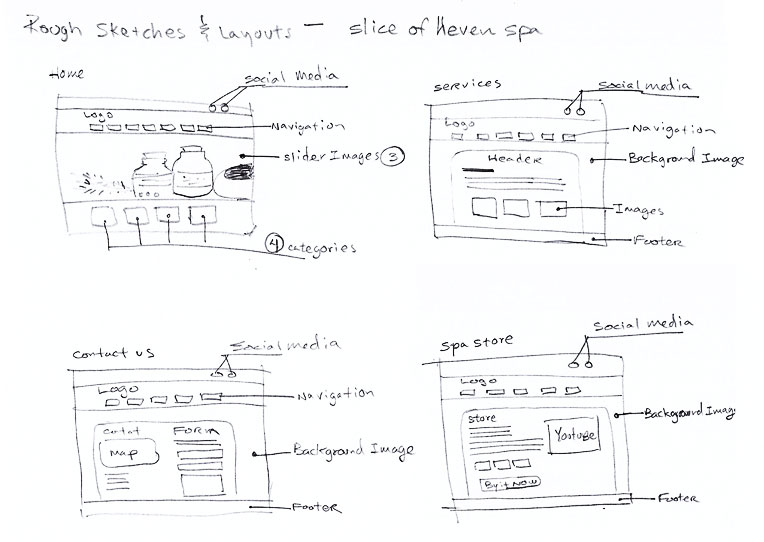 Rough Sketches & Layouts — slice of Heven spa
Home
social media
Logo
Navigation
slider Images 3
4 categories
services
social media
Logo
Navigation
Header
Background Image
Images
Footer
contact us
social media
Logo
Navigation
FORM
Map
Background Image
Footer
Spa store
social media
Logo
Background Image
store
Youtube
Buy it NOW
Footer